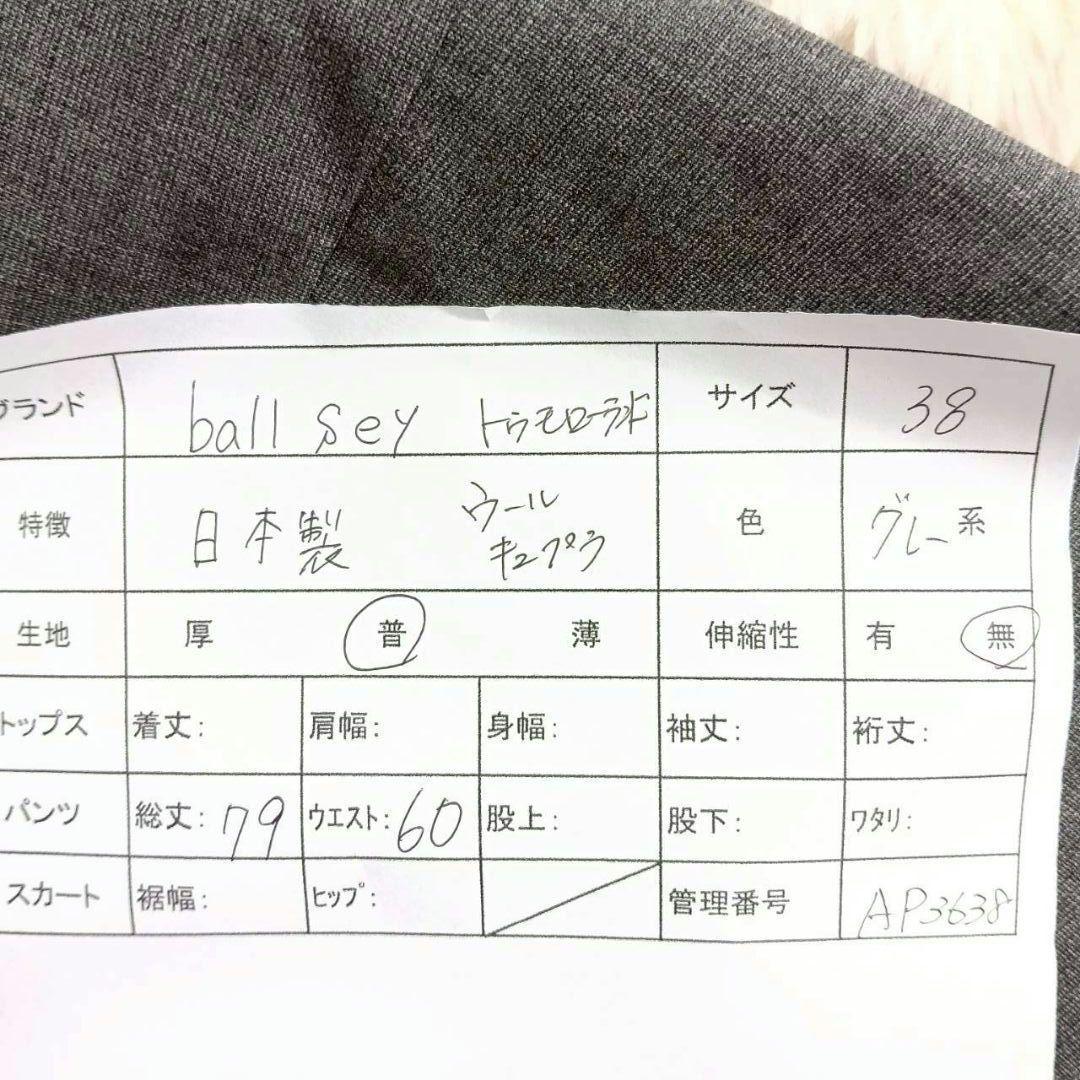 ブランド ball sey トゥモローランド サイズ 38
特徴 日本製 ウール キュプラ 色 グレー系
生地 厚 普 薄 伸縮性 有 無
トップス 着丈: 肩幅: 身幅: 袖丈: 裄丈:
パンツ 総丈: 79 ウエスト: 60 股上: 股下: ワタリ:
スカート 裾幅: ヒップ: 管理番号 AP3638